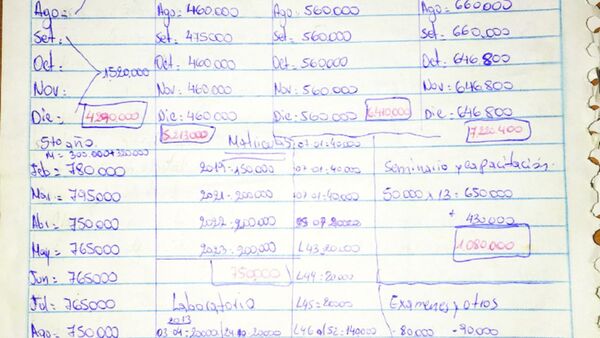 Ago: Ago: 460.000 Ago: 560.000 Ago: 660.000
Set: Set: 475000 Set: 560.000 Set: 660.000
Oct: 1520.000 Oct: 460.000 Oct: 560.000 Oct: 646.800
Nov: Nov: 460.000 Nov: 560.000 Nov: 646.800
Dic: 4290.000 Dic: 460.000 Dic: 560.000 6.410.000 Dic: 646.800
5to año 5.213.000 Matriculas 07-01:40.000 7.226.400
M = 300.000+320.000
Feb = 780.000 2019-150.000 07-01:40.000 Seminario y capacitación.
Mar = 795000 2021-200.000 07-01:40.000 50.000 x 13 = 650.000
Abr = 750.000 2022-200.000 + 430.000
May = 765000 2023-200.000 L43:20.000 1.080.000
Jun = 765000 750,000 L44=20.000
Jul = 765000 Laboratorio L45=20.000 Examenes y otros
2013
Ago = 750.000 03-04:20000 20000 L46 a/52=140000 -80.000 -90.000